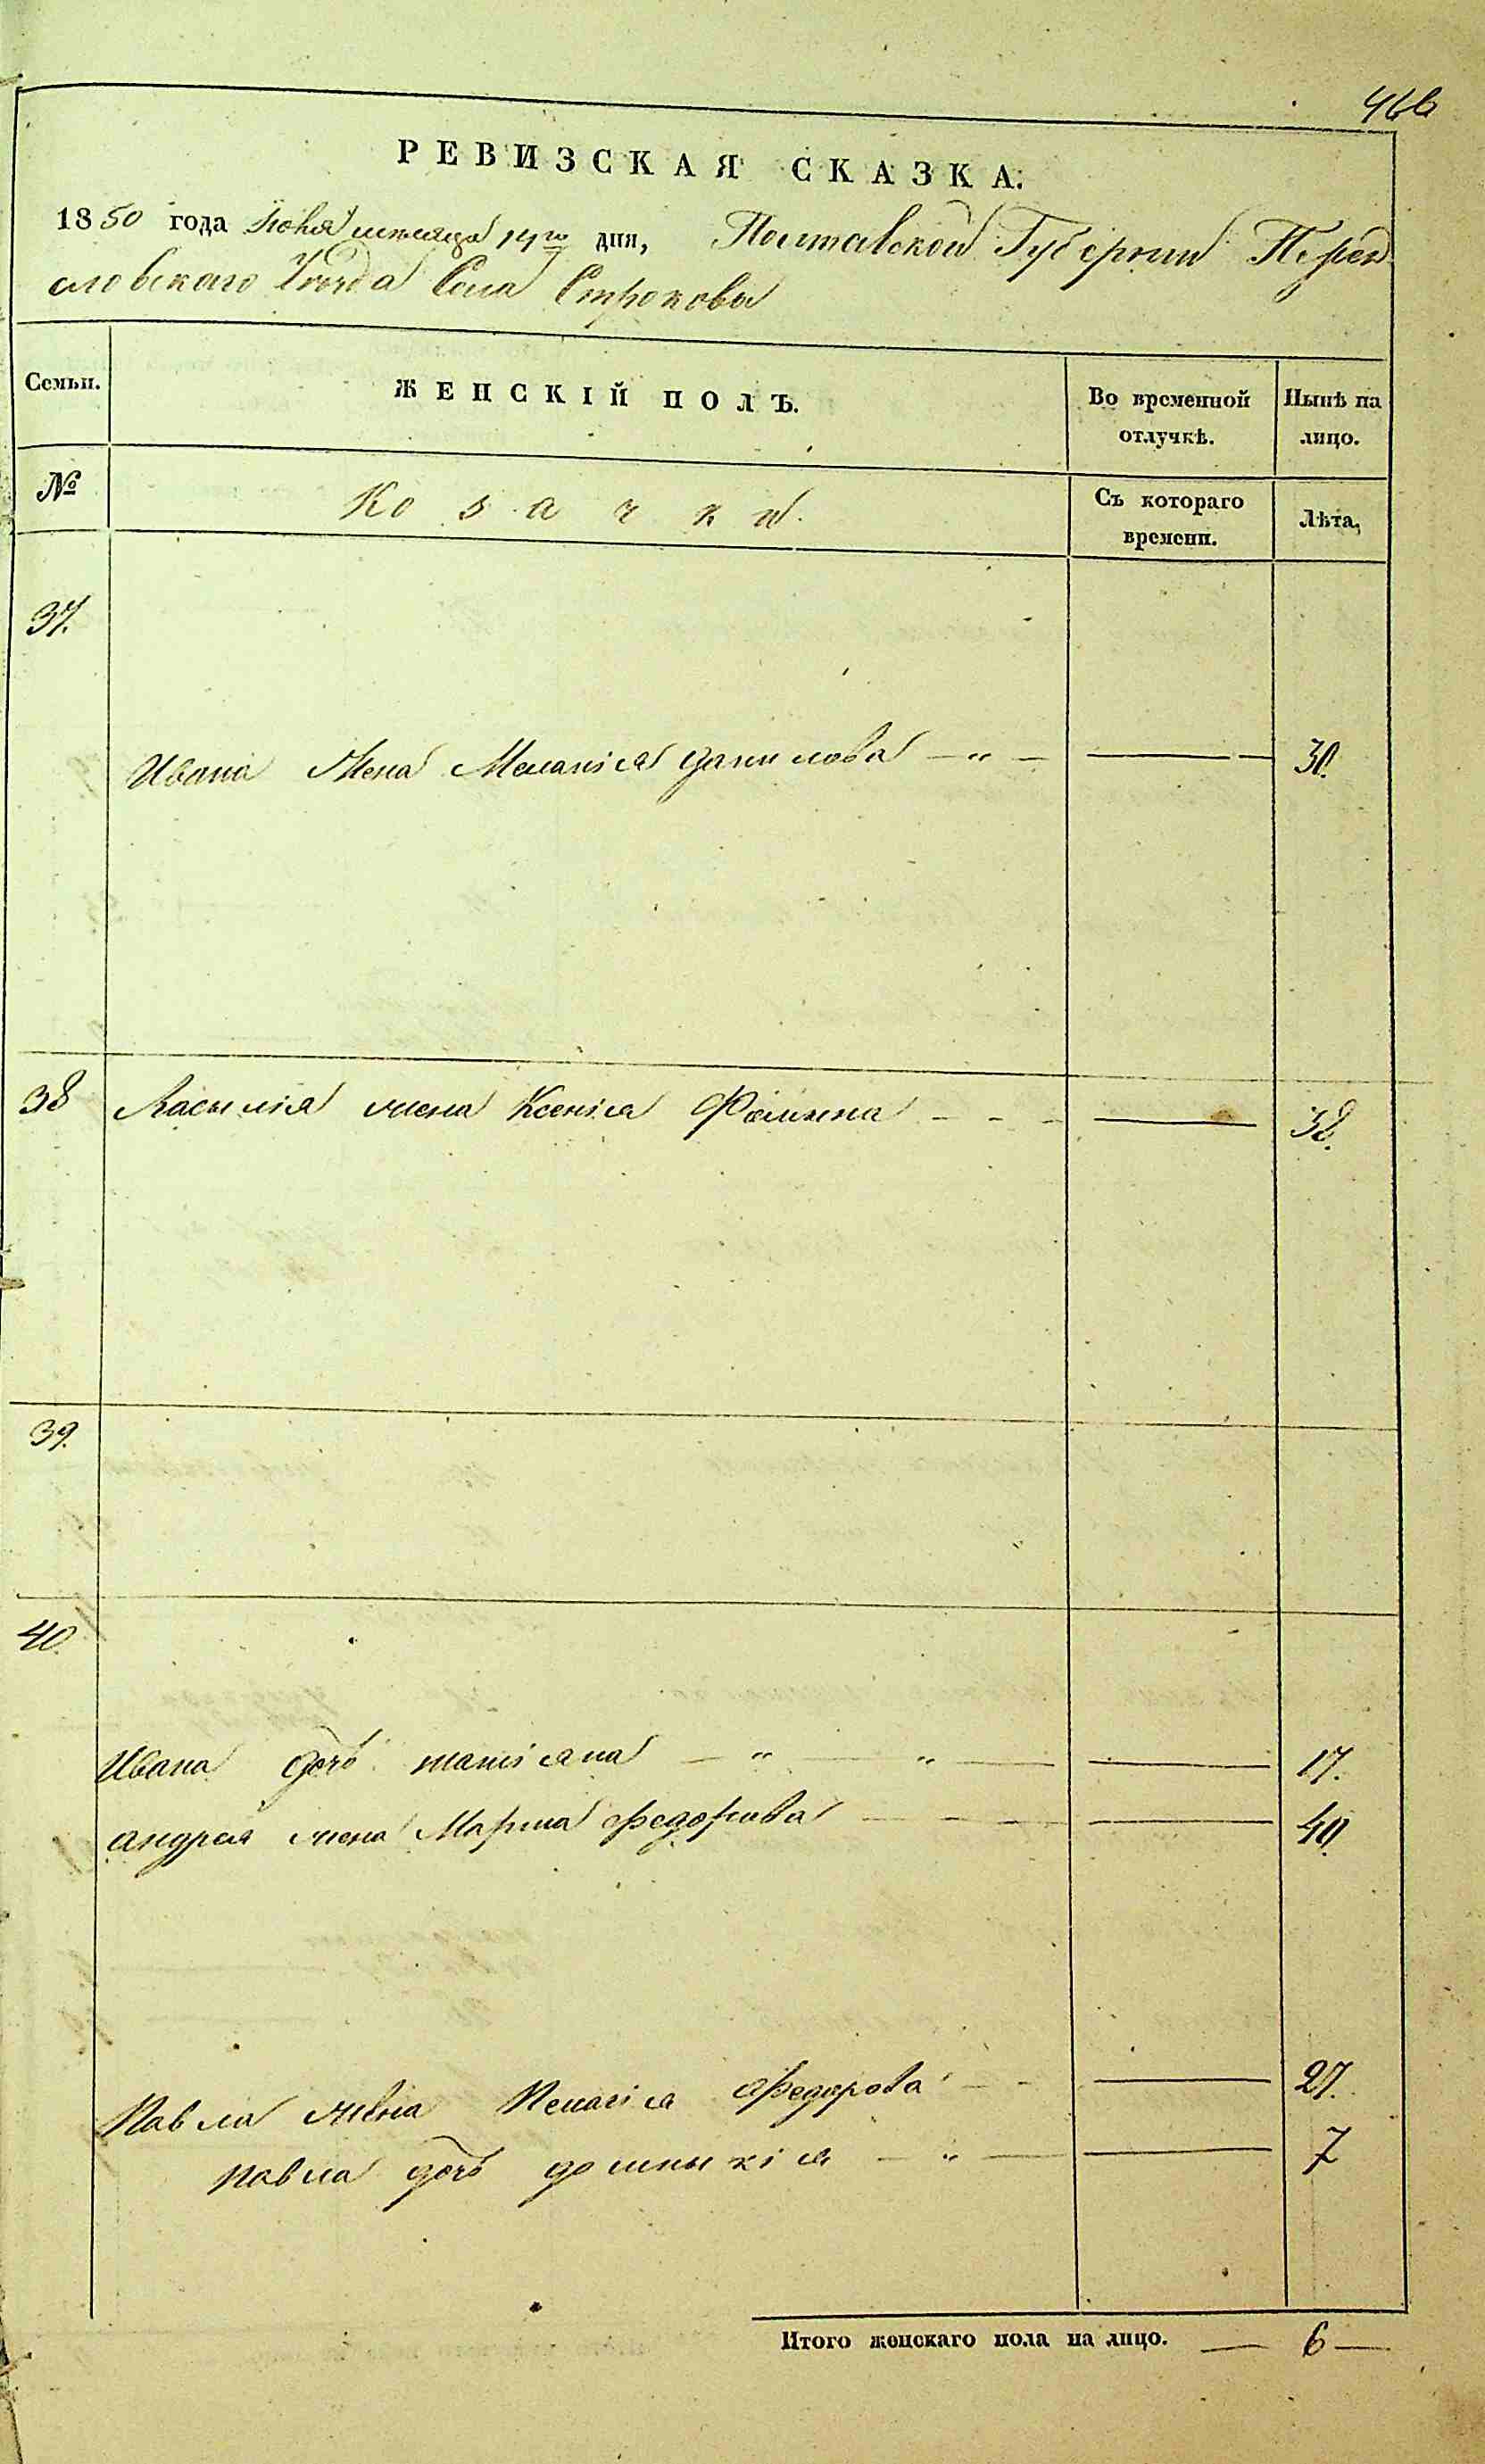 466
РЕВИЗСКАЯ СКАЗКА.
1850 года Июня месяца 14го дня, Полтавской Губернии Переяс
ловскаго Уезда Села Строковы
Семьи. ЖЕНСКІЙ ПОЛЪ. Во временной отлучкѣ. Нынѣ на лицо.
№ Козачки. Съ котораго времени. Лѣта,
37.
Ивана Жена Меланія Данилова — " — — 30.
38 Василія жена Ксенія Фомина - - - — 38.
39.
40.
Ивана дочь татіяна — " — " — — 17.
андрея жена Марша федорова — — — — 40
Павла жена Пелагія Федорова - - — 27.
павла дочь домникія — " — — 7
Итого женскаго пола на лицо. — 6 —